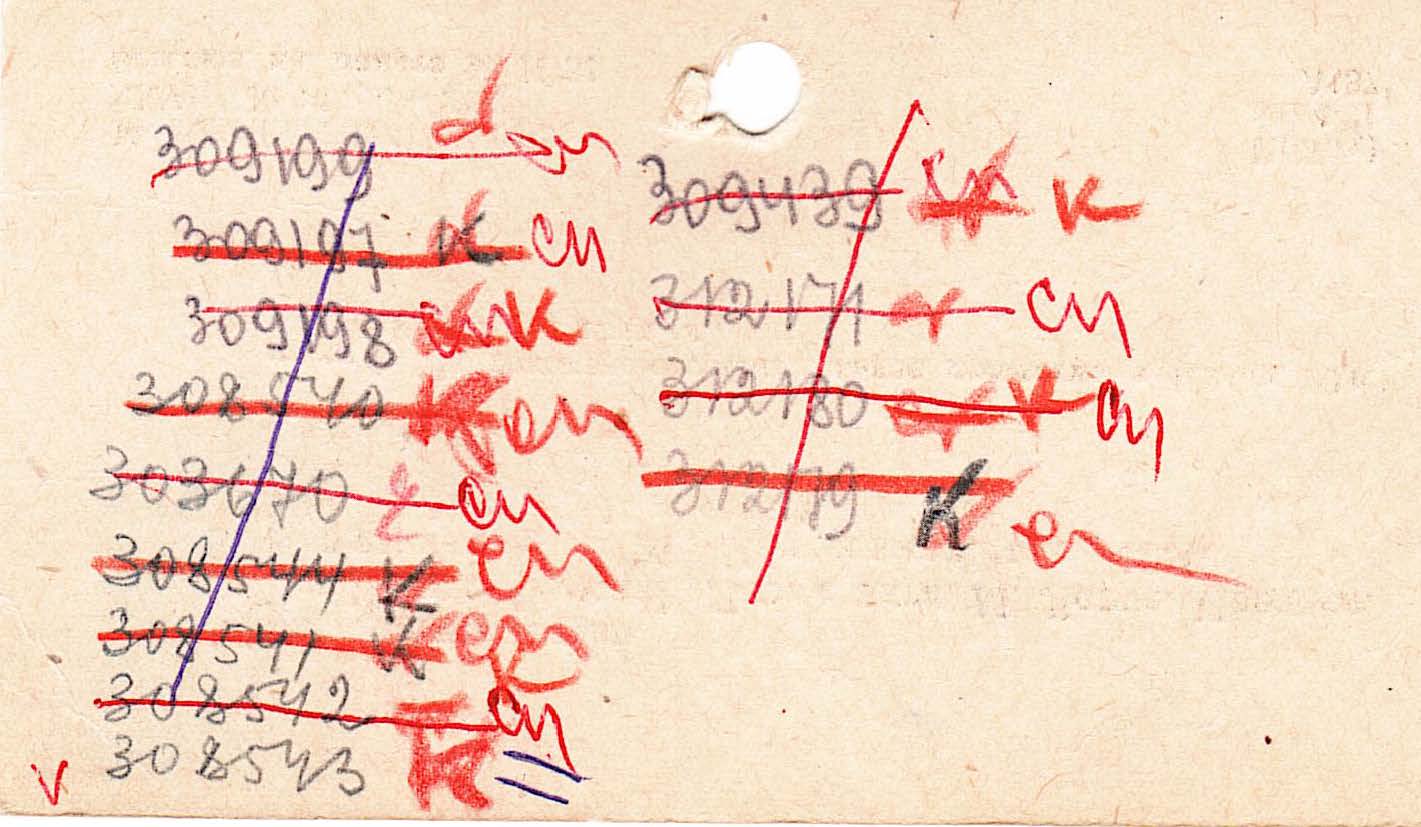 309199 сп
309197 К сп
309198 К
308540 К сп
303670 сп
308544 К сп
308541 К сп
308542 сп
V 308543 К
309439 К
312171 сп
312180 К сп
312179 К сп